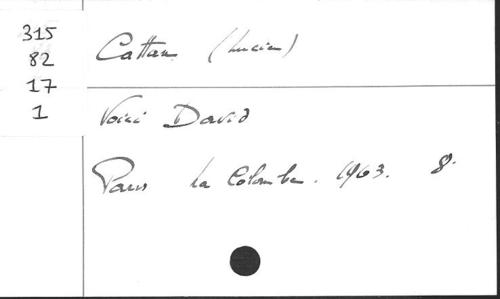 315
82
17
1
Cattan (Lucien)
Voici David
Paris La Colombe. 1963. 8°